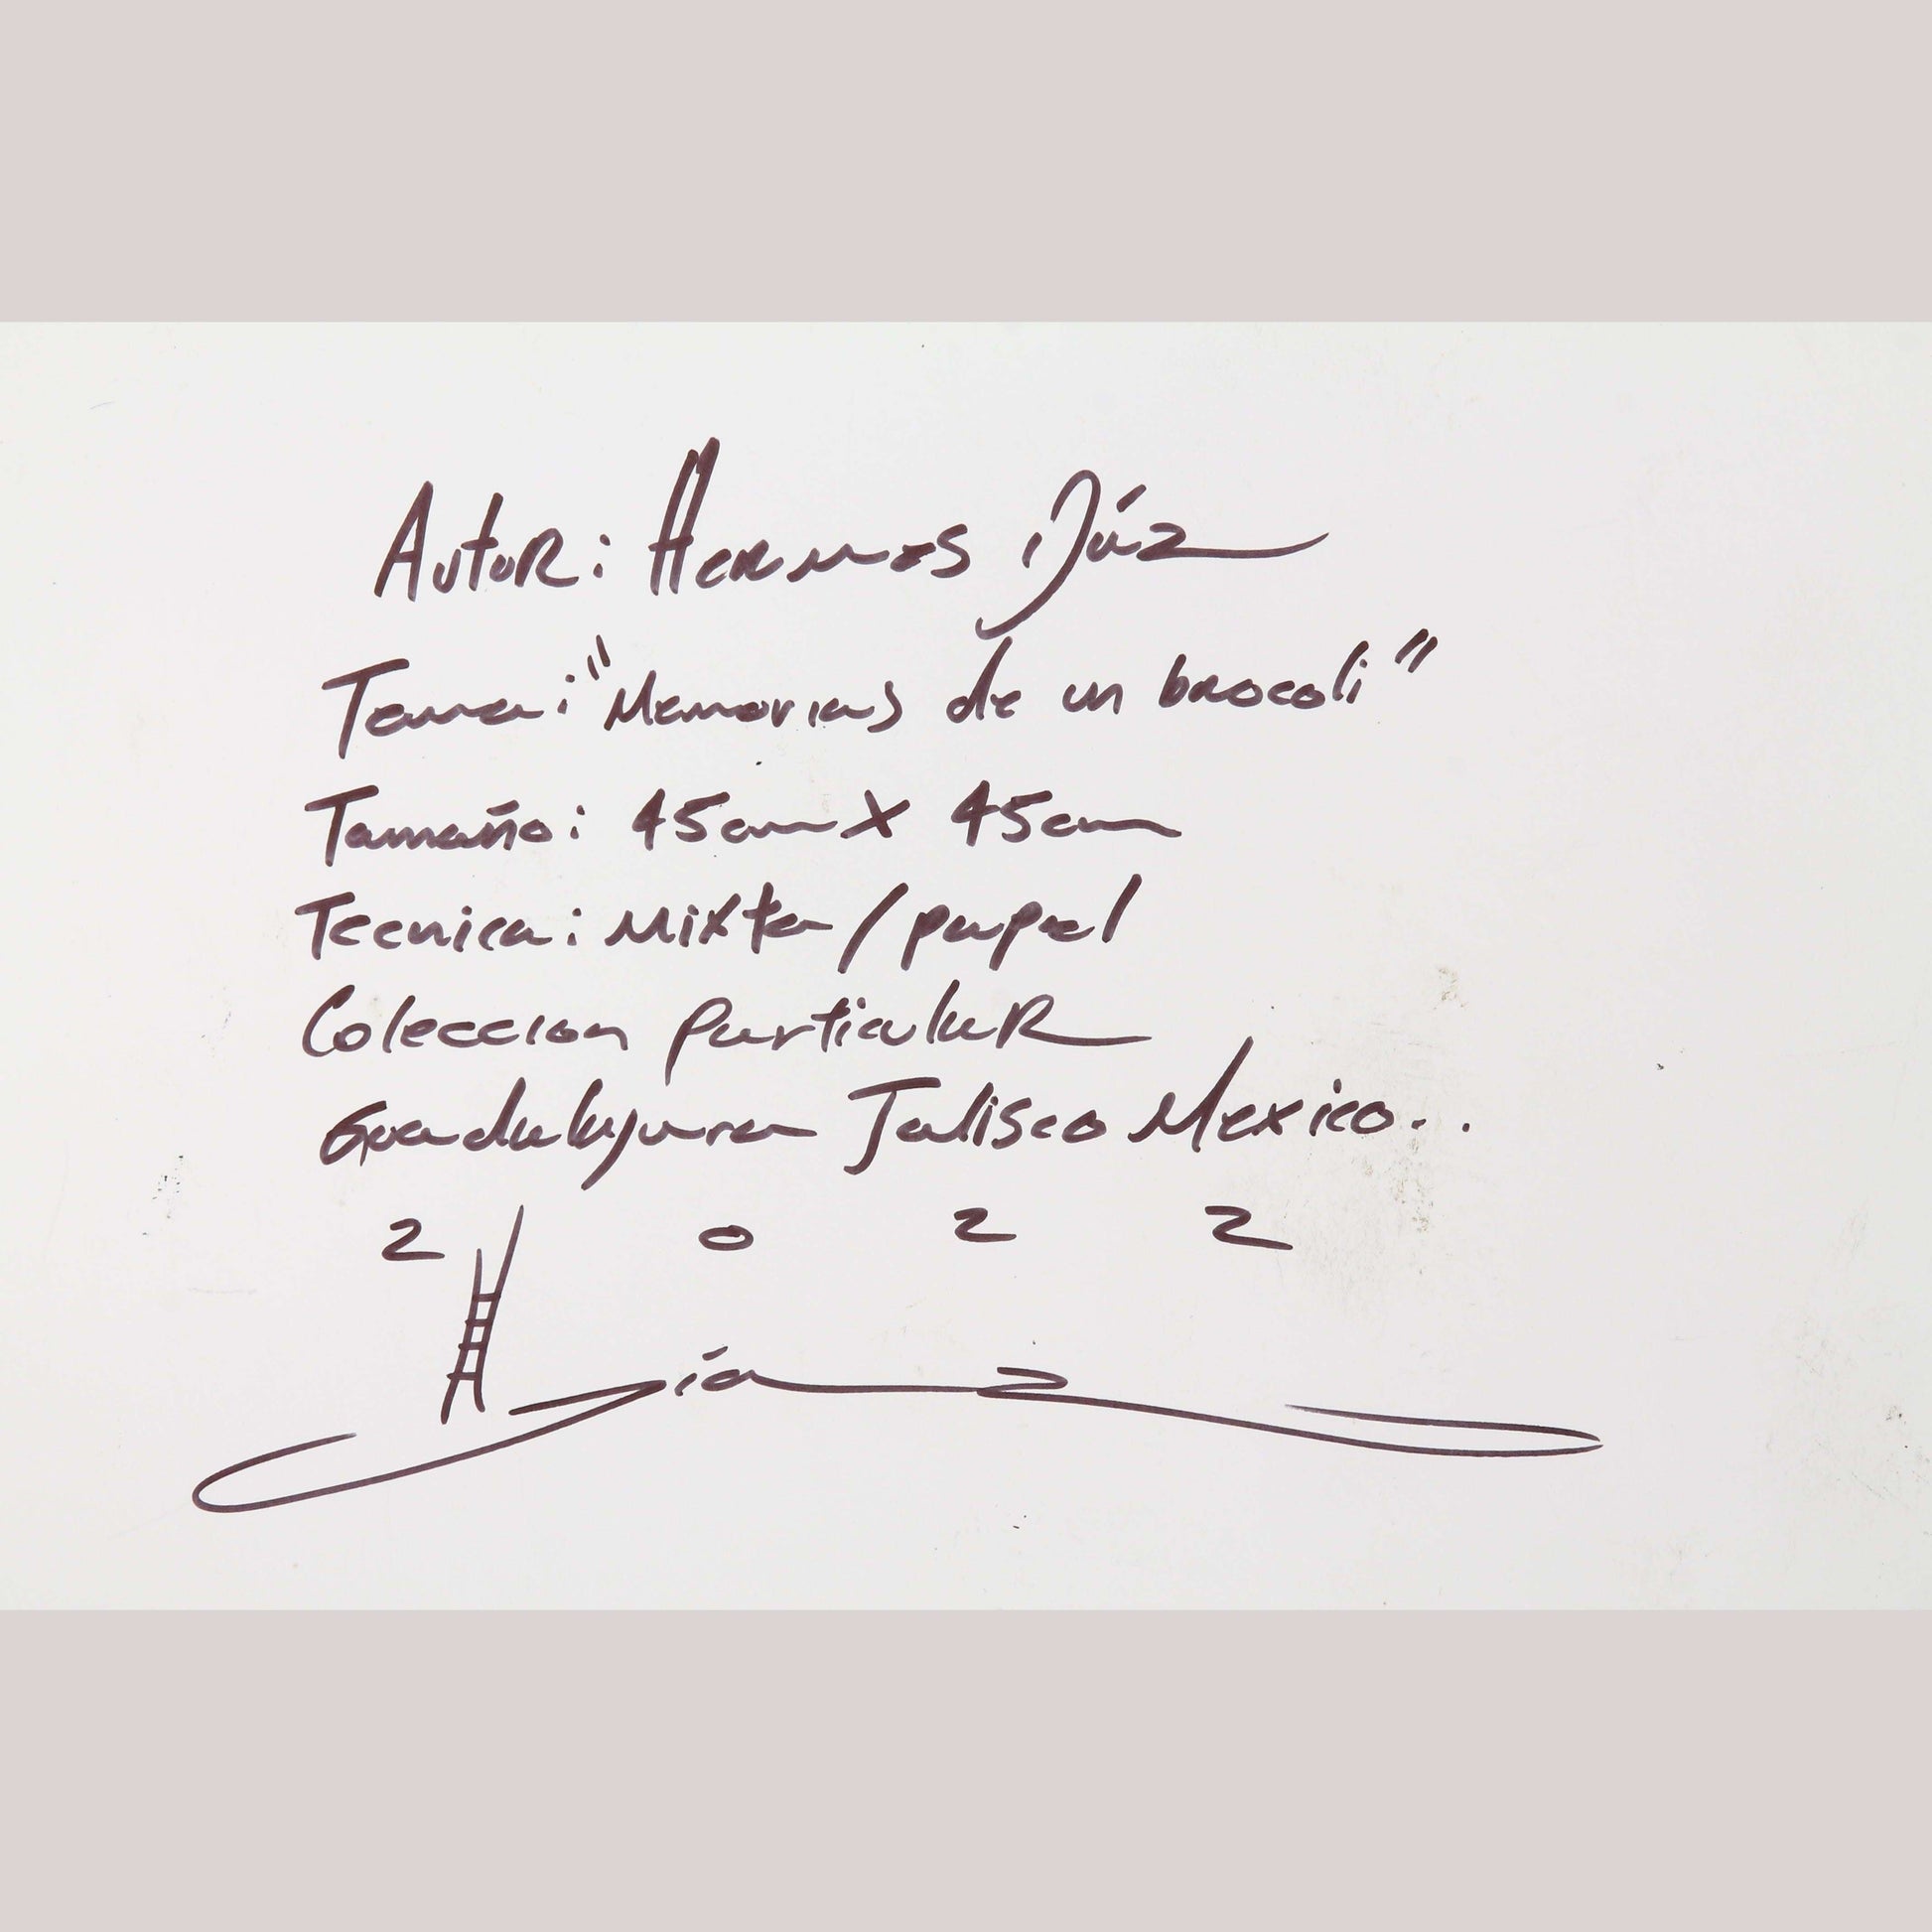 Autor: Hermes Díaz
Tema: "Memorias de un brocoli"
Tamaño: 45cm x 45cm
Tecnica: Mixta / papel
Coleccion particular
Guadalajara Jalisco Mexico..
2 0 2 2
H Díaz